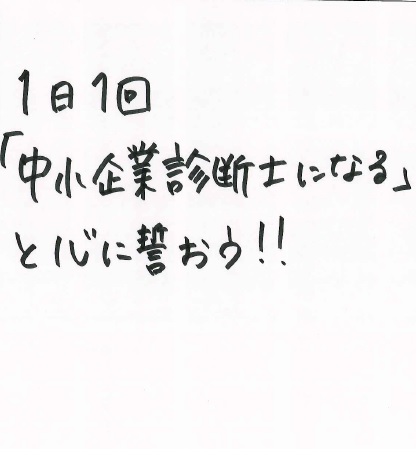 1日1回
「中小企業診断士になる」
と心に誓おう!!